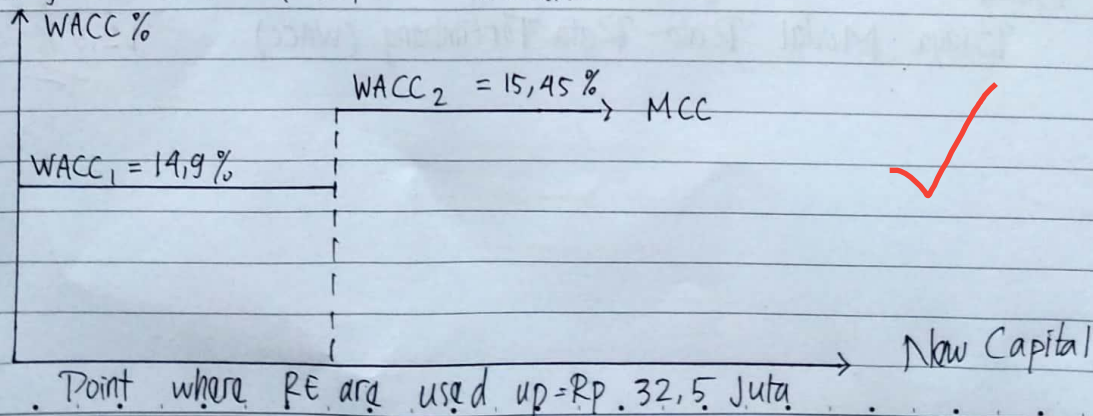 WACC %
WACC₂ = 15,45 %
MCC
WACC₁ = 14,9 %
New Capital
Point where RE are used up = Rp. 32,5 Juta